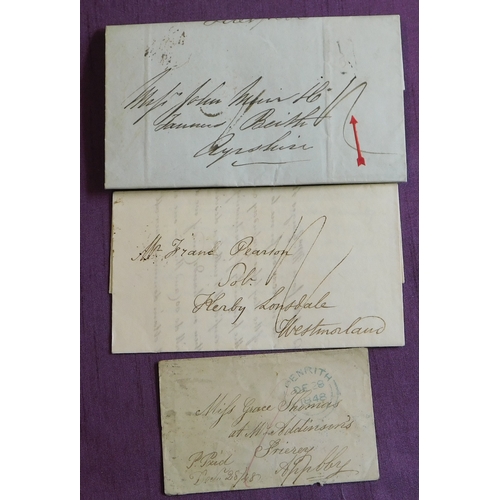 Messrs John Muir & Co
Tanners Beith
Ayrshire
Mr. Franc Pearson
Sol.
Kerby Lonsdale
Westmorland
PENRITH
DE 28
1848
Miss Grace Thomas
at Mrs Addinson's
Priory
Appleby
P. Paid
28/48